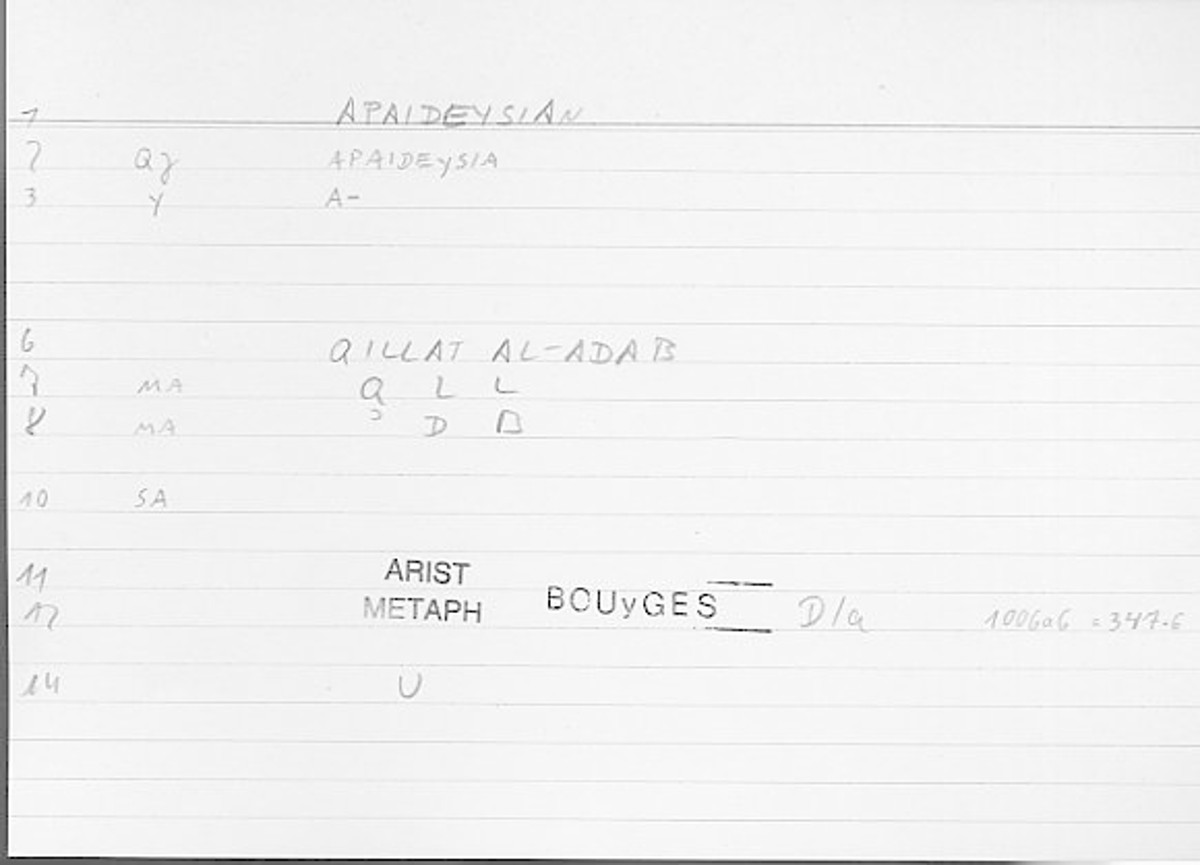 1 APAIDEYSIAN
2 Qγ APAIDEYSIA
3 γ A-
6 QILLAT AL-ADAB
7 MA Q L L
8 MA ʾ D B
10 SA
11 ARIST
12 METAPH BOUyGES D/a 1006a6 = 347.6
14 U